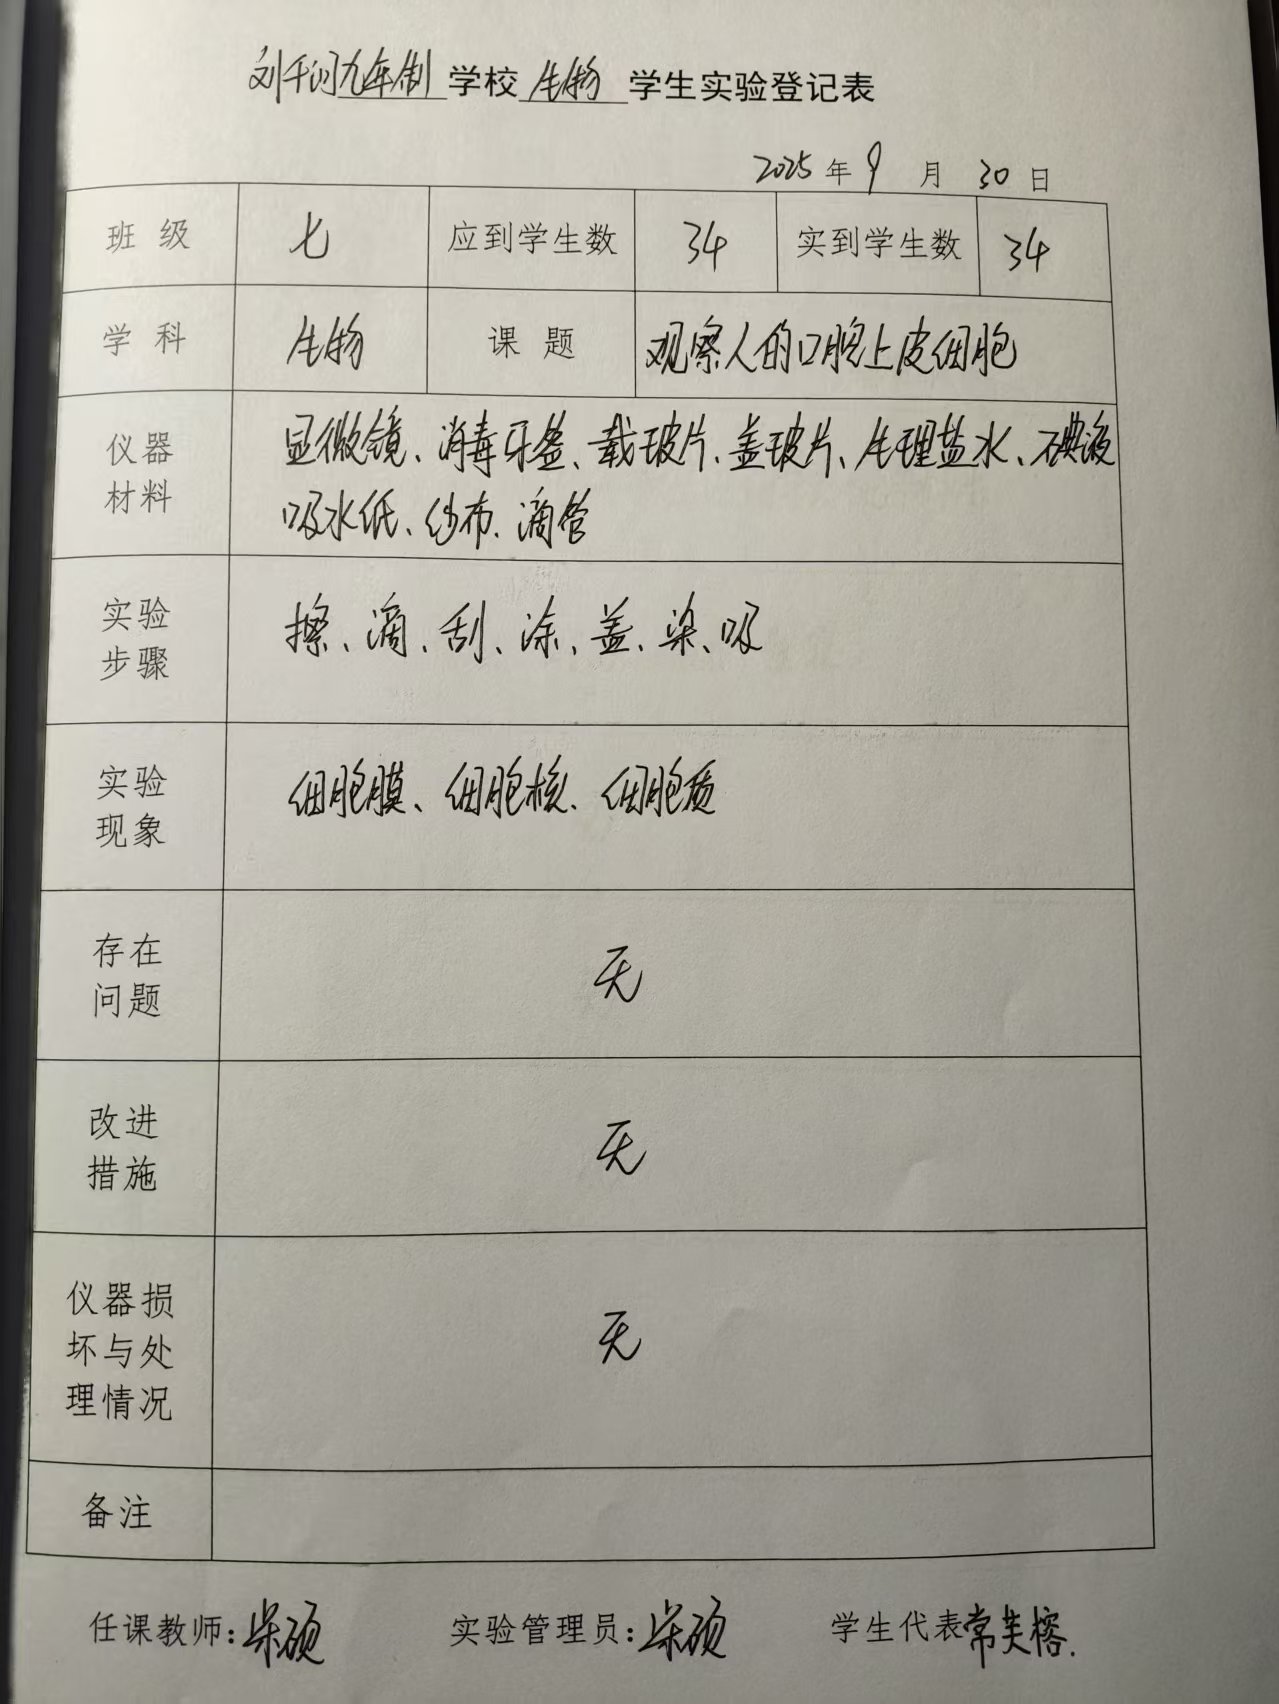 刘千河九年制学校 生物 学生实验登记表
2025年9月30日
班级 七 应到学生数 34 实到学生数 34
学科 生物 课题 观察人的口腔上皮细胞
仪器材料 显微镜、消毒牙签、载玻片、盖玻片、生理盐水、碘液
吸水纸、纱布、滴管
实验步骤 擦、滴、刮、涂、盖、染、吸
实验现象 细胞膜、细胞核、细胞质
存在问题 无
改进措施 无
仪器损坏与处理情况 无
备注
任课教师: 硕 实验管理员: 硕 学生代表 常芙榕.